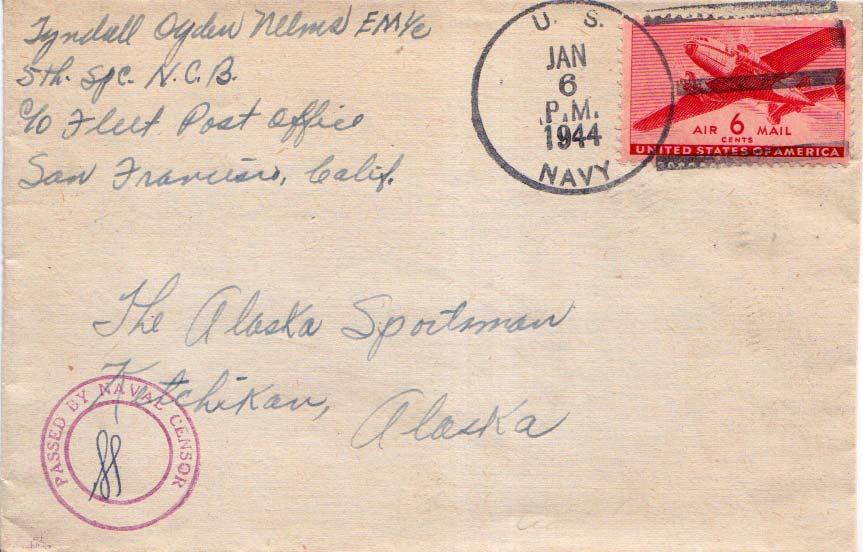 Tyndall Ogden Nelms EM1/c
5th. Spc. N.C.B.
c/o Fleet Post Office
San Francisco, Calif.
U. S.
JAN
6
P.M.
1944
NAVY
AIR 6 MAIL
CENTS
UNITED STATES OF AMERICA
The Alaska Sportsman
Ketchikan,
Alaska
PASSED BY NAVAL CENSOR